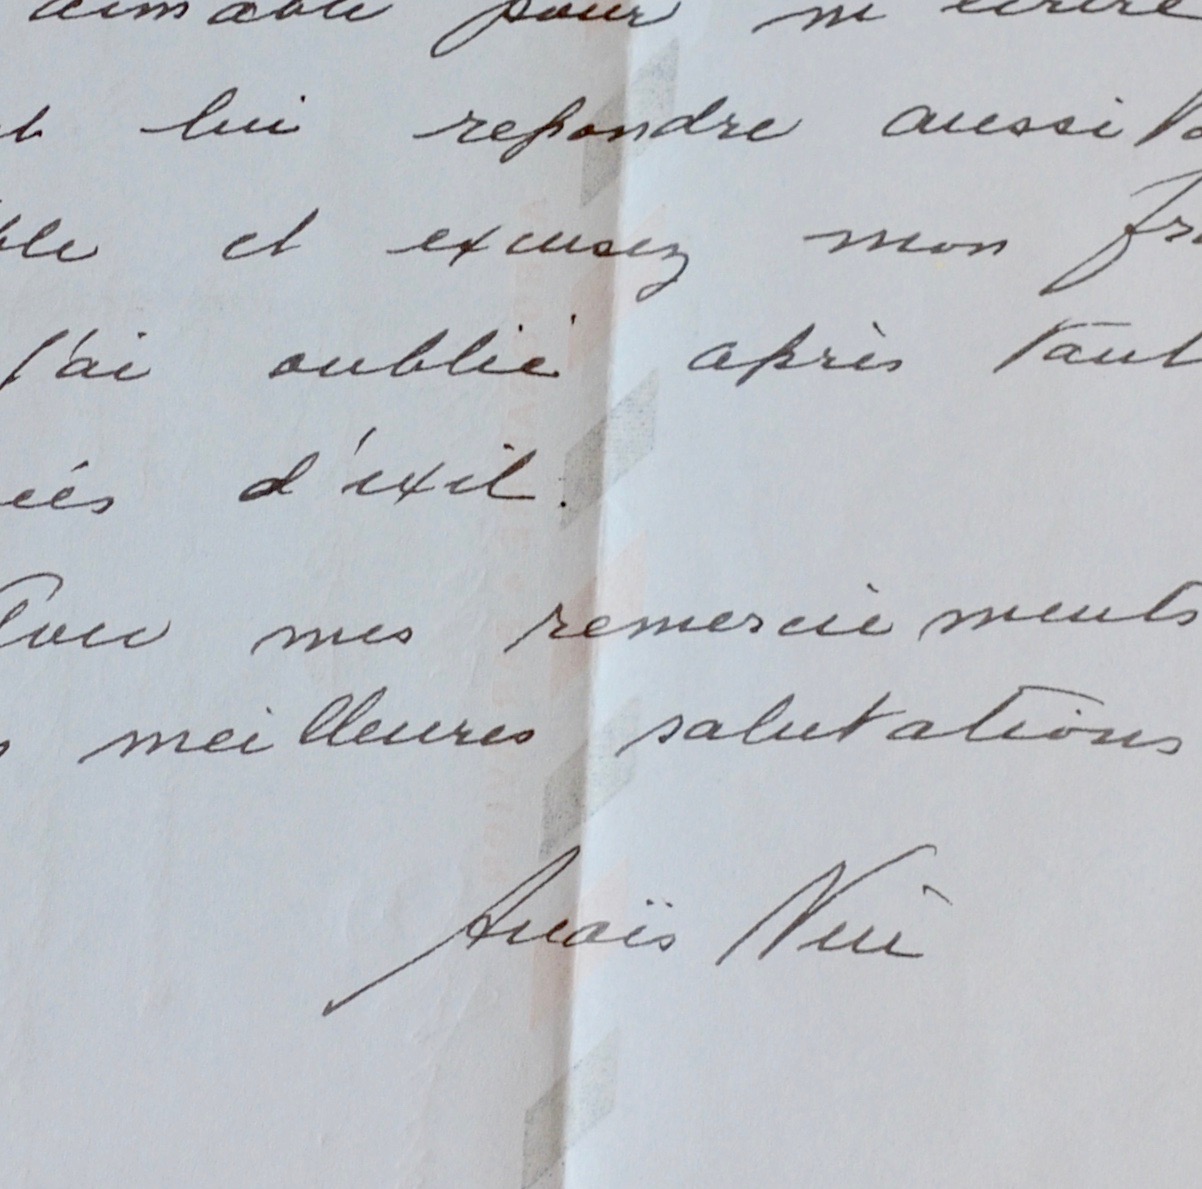 aimable pour m'écrire
lui repondre aussi
et excusez mon
J'ai oublié après tant
d'exil.
Avec mes remerciements
meilleures salutations
Anaïs Nin